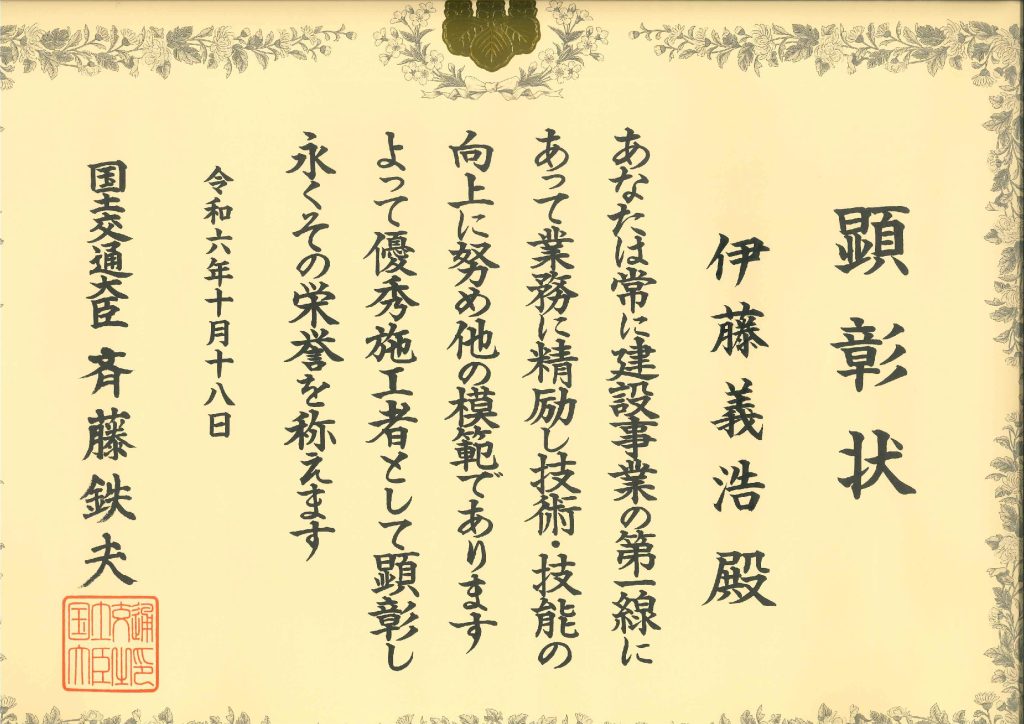 顕彰状
伊藤義浩殿
あなたは常に建設事業の第一線に
あって業務に精励し技術・技能の
向上に努め他の模範であります
よって優秀施工者として顕彰し
永くその栄誉を称えます
令和六年十月十八日
国土交通大臣 斉藤鉄夫
国土交通大臣之印